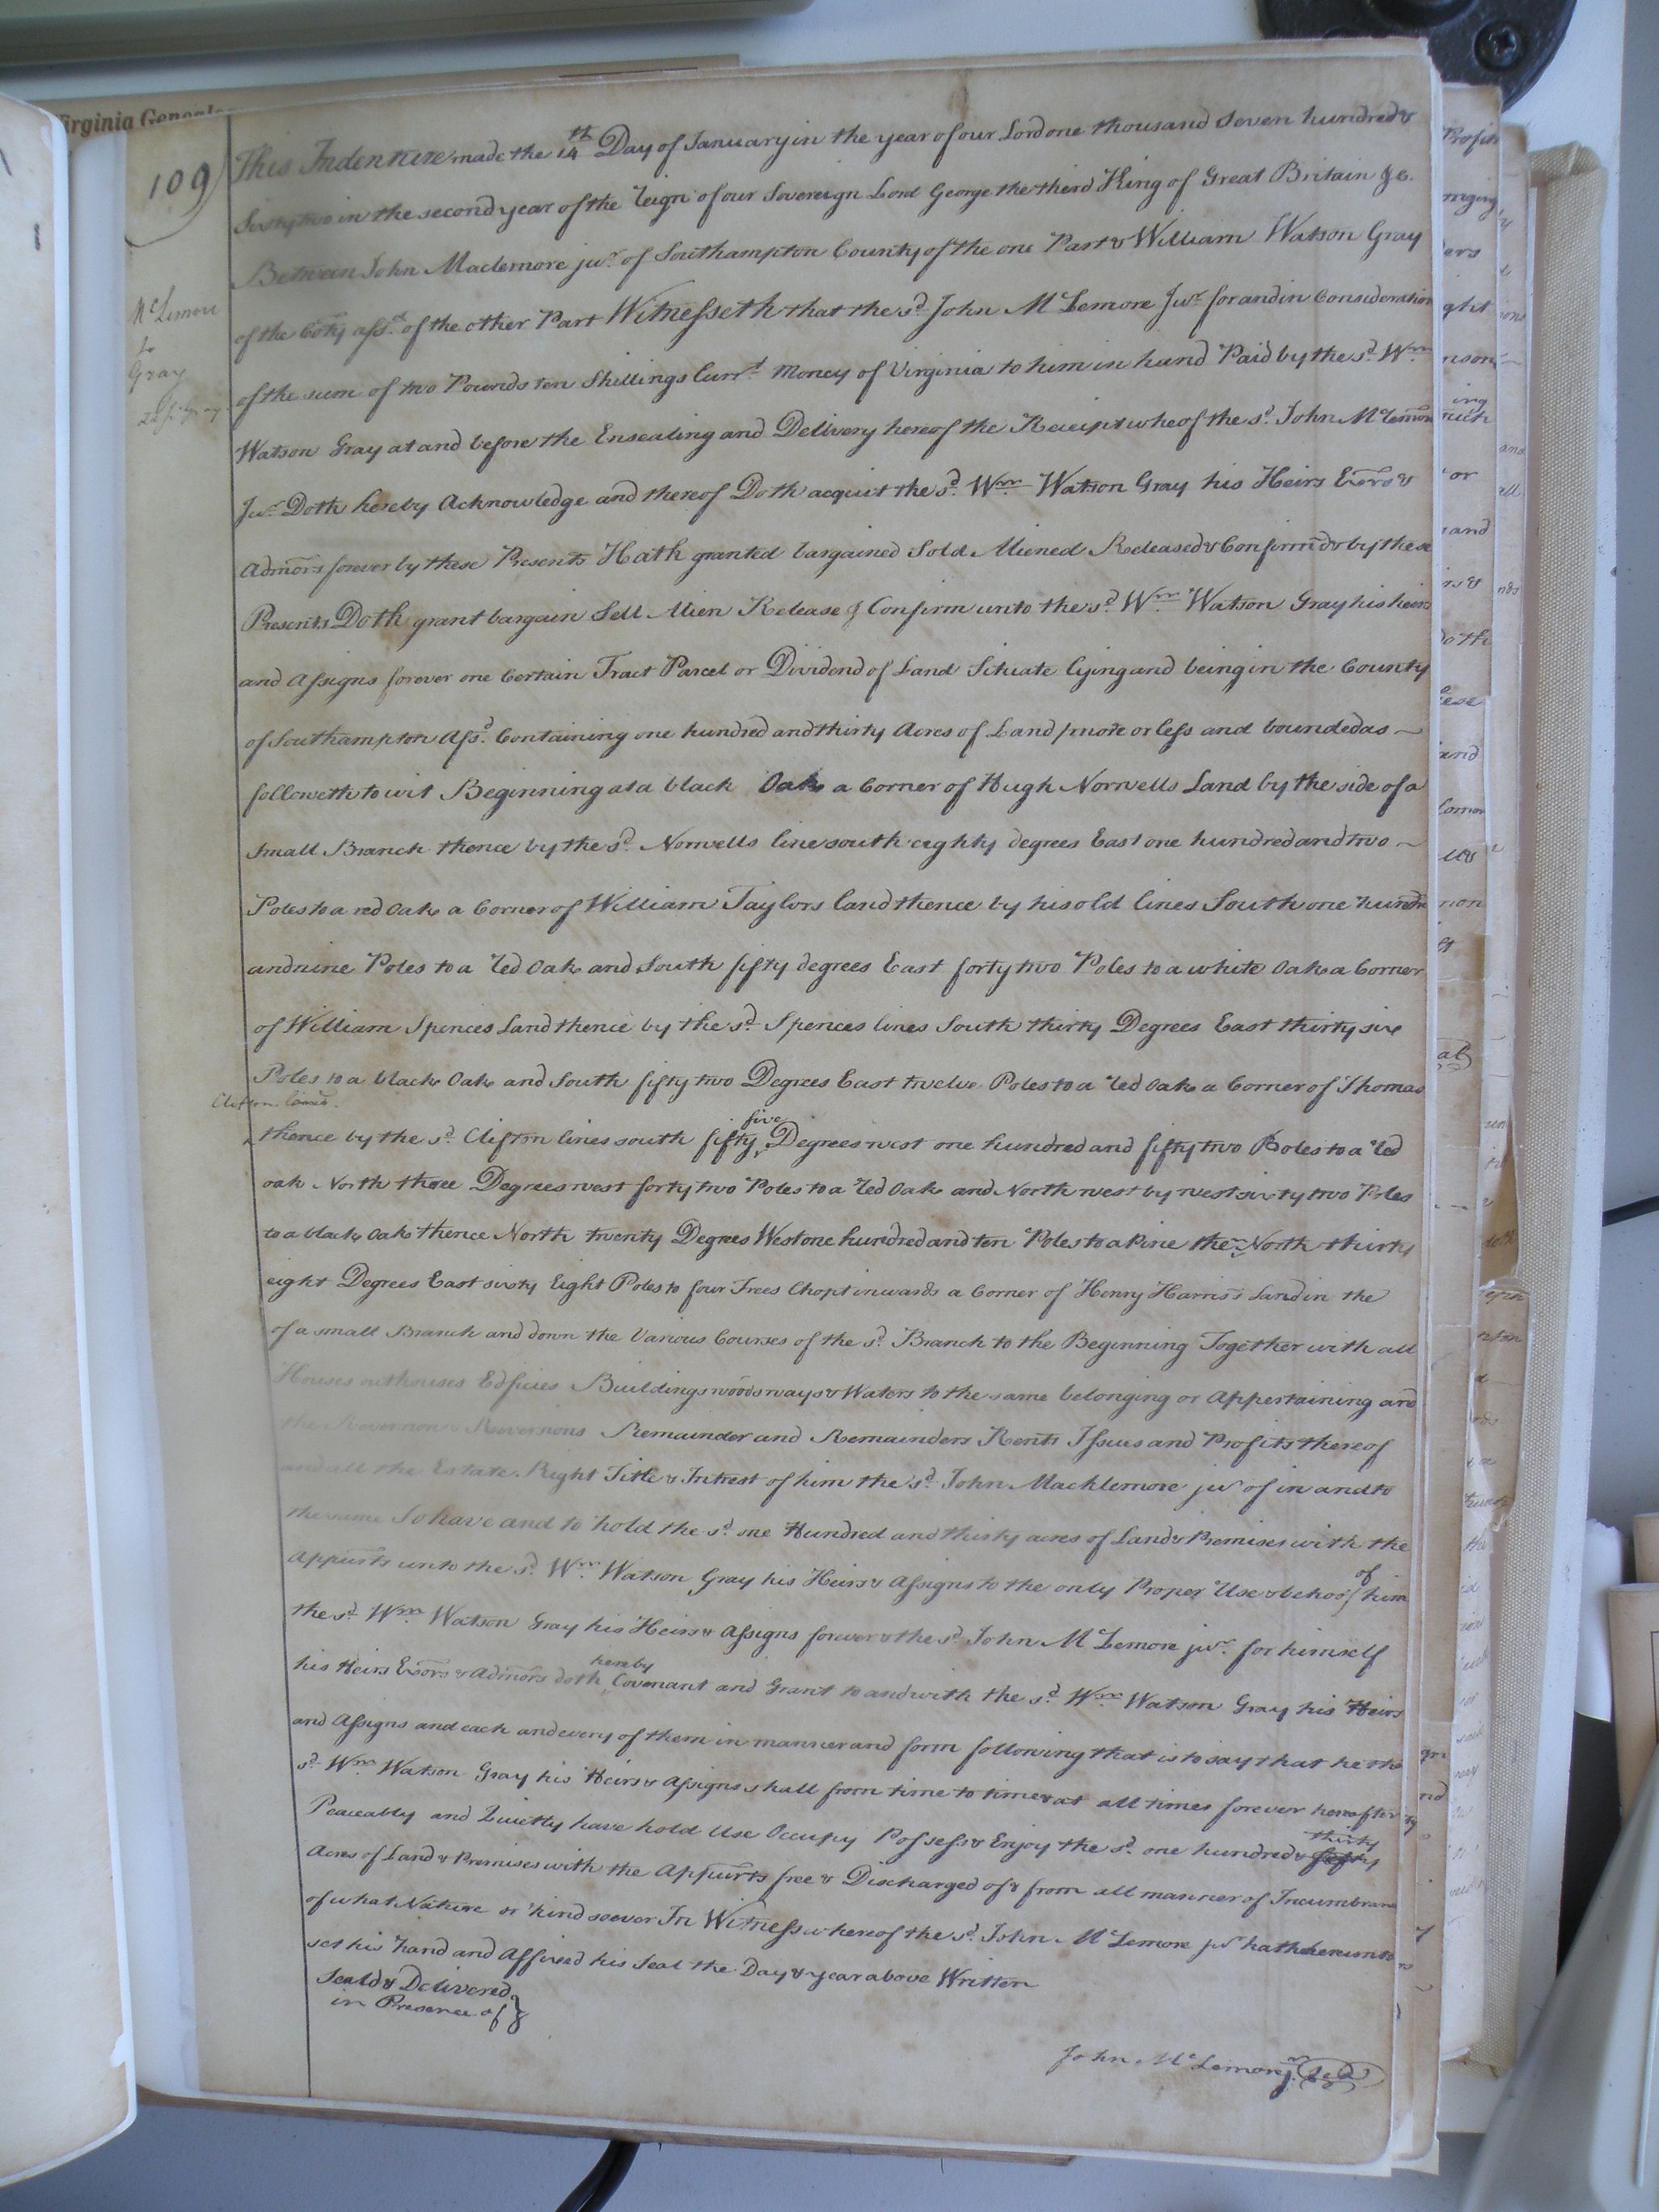 Virginia Genealo
109
McLemore
to
Gray
This Indenture made the 14th Day of January in the year of our Lord one thousand Seven hundred &
Sixty two in the second year of the reign of our Sovereign Lord George the third King of Great Britain &c.
Between John Maclemore junr. of Southampton County of the one Part & William Watson Gray
of the Coty afsd. of the other Part Witnesseth that the sd. John McLemore Junr. for and in Consideration
of the sum of two Pounds ten Shillings Currt. Money of Virginia to him in hand Paid by the sd. Wm.
Watson Gray at and before the Ensealing and Delivery hereof the Receipt wheof the sd. John McLemore
Junr. Doth hereby Acknowledge and thereof Doth acquit the sd. Wm. Watson Gray his Heirs Exors &
Admors forever by these Presents Hath granted bargained Sold Aliened Released & Confirm'd & by these
Presents Doth grant bargain Sell Alien Release & Confirm unto the sd. Wm. Watson Gray his heirs
and Assigns forever one Certain Tract Parcel or Dividend of Land Situate lying and being in the County
of Southampton Afsd. Containing one hundred and thirty Acres of Land / more or less and bounded as
followeth to wit Beginning at a black Oak a Corner of Hugh Norvells Land by the side of a
Small Branch thence by the sd. Norvells line south eighty degrees East one hundred and two
Poles to a red Oak a Corner of William Taylors land thence by his old lines South one hundre
and nine Poles to a red Oak and South fifty degrees East forty two Poles to a white Oak a Corner
of William Spences Land thence by the sd. Spences lines South thirty Degrees East thirty six
Poles to a black Oak and South fifty two Degrees East twelve Poles to a red Oak a Corner of Thomas
Clifton
thence by the sd. Clifton lines south fifty five Degrees west one hundred and fifty two Poles to a red
oak North three Degrees west forty two Poles to a red Oak and North west by west sixty two Poles
to a black Oak thence North twenty Degrees West one hundred and ten Poles to a Pine then North thirty
eight Degrees East sixty Eight Poles to four Trees Chopt inwards a Corner of Henry Harris's Land in the
of a small Branch and down the Various Courses of the sd. Branch to the Beginning Together with all
Houses outhouses Edifices Buildings woods ways & Waters to the same belonging or Appertaining and
the Reversion & Reversions Remainder and Remainders Rents Issues and Profits thereof
and all the Estate Right Title & Intrest of him the sd. John Macklemore junr of in and to
the same To have and to hold the sd. one Hundred and thirty acres of Land & Premises with the
Appurts unto the sd. Wm. Watson Gray his Heirs & Assigns to the only Proper Use & behoof of him
the sd. Wm. Watson Gray his Heirs & Assigns forever & the sd. John McLemore junr. for himself
his Heirs Exors & Admors doth hereby Covenant and Grant to and with the sd. Wm. Watson Gray his Heirs
and Assigns and each and every of them in manner and form following that is to say that he the
sd. Wm. Watson Gray his Heirs & Assigns shall from time to time & at all times forever hereafter
Peaceably and Quietly have hold Use Occupy Possess & Enjoy the sd. one hundred & fifty thirty
Acres of Land & Premises with the Appurts free & Discharged of & from all manner of Incumbran
of what Nature or kind soever In Witness whereof the sd. John McLemore junr hath hereunto
set his hand and Affixed his Seal the Day & year above Written
Seald & Delivered
in Presence of
John McLemore jr. Seal